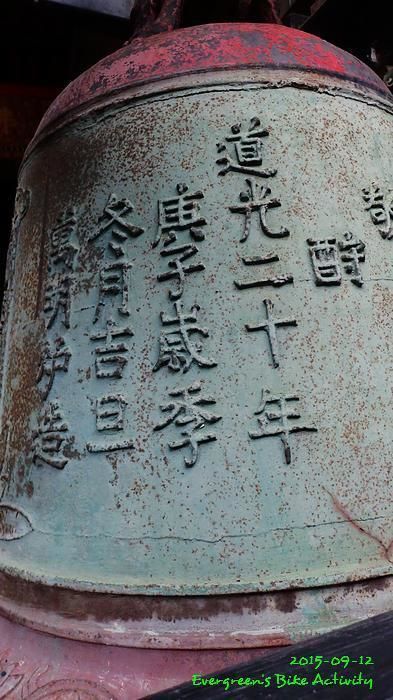 敬
酧
道光二十年
庚子歲季
冬月吉旦
萬明炉造
2015-09-12
Evergreen's Bike Activity